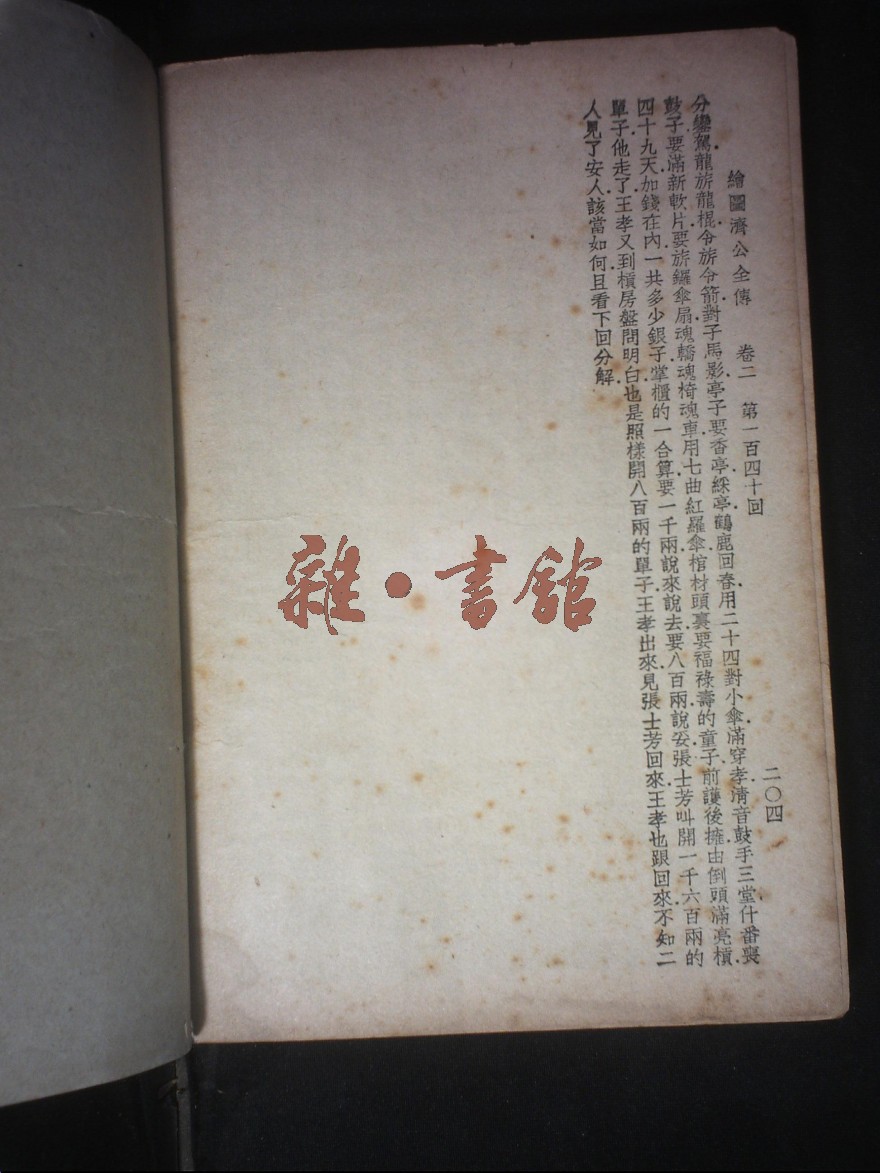 繪圖濟公全傳 卷二 第一百四十回 二〇四
分鑾駕龍旂龍棍令旂令箭對子馬影亭子要香亭綵亭鶴鹿回春用二十四對小傘滿穿孝淸音鼓手三堂什番喪
鼓子要滿新軟片要旂鑼傘扇魂轎魂椅魂車用七曲紅羅傘棺材頭裏要福祿壽的童子前護後擁由倒頭滿亮槓
四十九天加錢在內一共多少銀子掌櫃的一合算要一千兩說來說去要八百兩說妥張士芳叫開一千六百兩的
單子他走了王孝又到槓房盤問明白也是照樣開八百兩的單子王孝出來見張士芳回來王孝也跟回來不知二
人見了安人該當如何且看下回分解
雜·書舘